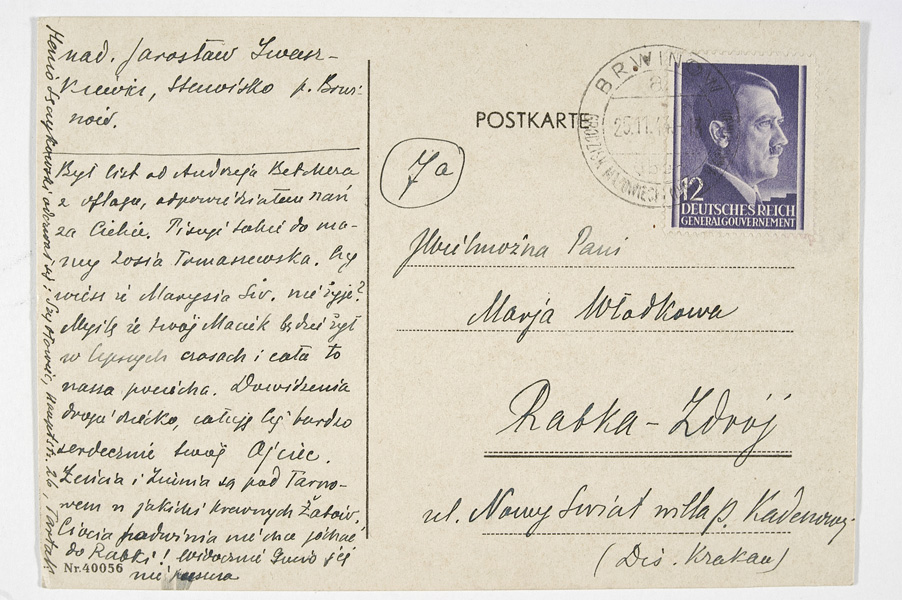 nad. Jarosław Iwasz-
kiewicz, Stawisko p. Brwi-
nów.
Był list od Andrzeja Betchera
z oflagu, odpowiedziałem nań
za Ciebie. Pisuje sobie do ma-
my Zosia Tomaszewska. Czy
wiesz że Marysia Św. nie żyje?
Myślę że twój Maciek będzie żył
w lepszych czasach i cała to
nasza pociecha. Dowidzenia
drogie dziecko, całuję Cię bardzo
serdecznie twój Ojciec.
i są pod Tarno-
wem u jakichś krewnych
Ciocia nie chce jechać
do Rabki! Widocznie jej
nie puszcza
Nr. 40056
POSTKARTE
7a
BRWINOW
25.11.44
12
DEUTSCHES REICH
GENERALGOUVERNEMENT
Wielmożna Pani
Marja Włodkowa
Rabka-Zdrój
ul. Nowy Świat willa p. Kadenowej
(Dis. Krakau)